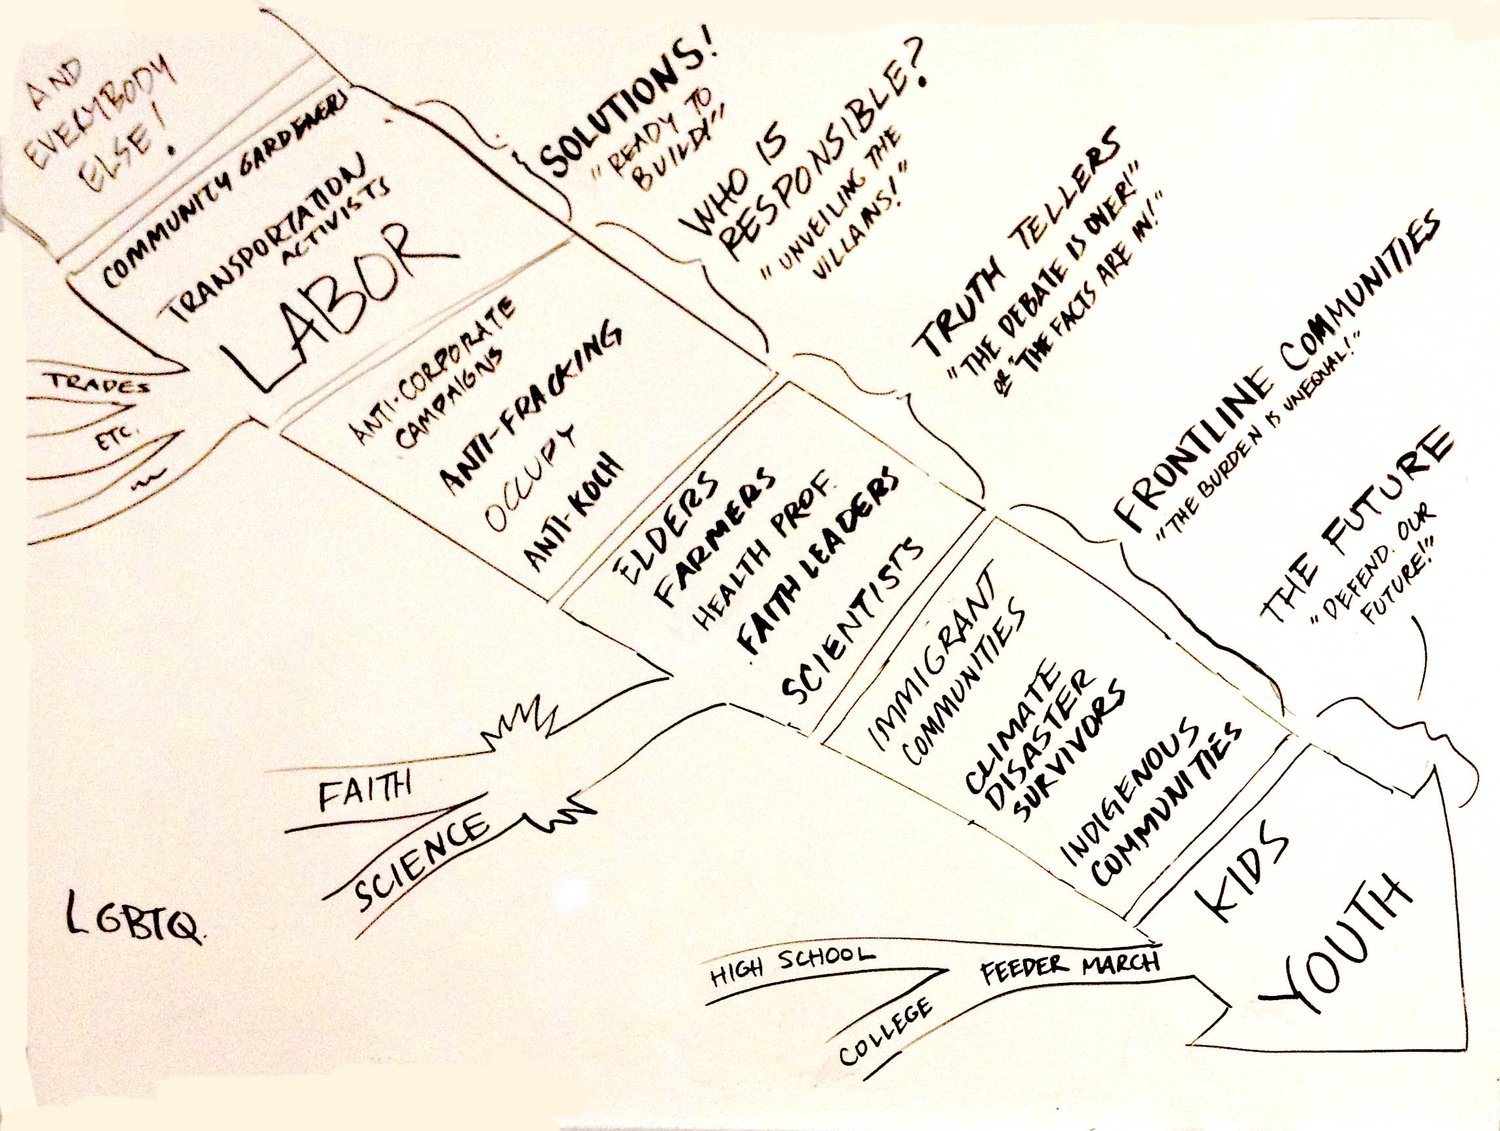 AND
EVERYBODY
ELSE!
COMMUNITY GARDENERS
TRANSPORTATION
ACTIVISTS
LABOR
TRADES
ETC.
SOLUTIONS!
"READY TO
BUILD!"
ANTI-CORPORATE
CAMPAIGNS
ANTI-FRACKING
OCCUPY
ANTI-KOCH
WHO IS
RESPONSIBLE?
"UNVEILING THE
VILLAINS!"
ELDERS
FARMERS
HEALTH PROF.
FAITH LEADERS
SCIENTISTS
TRUTH TELLERS
"THE DEBATE IS OVER!"
OR "THE FACTS ARE IN!"
FAITH
SCIENCE
IMMIGRANT
COMMUNITIES
CLIMATE
DISASTER
SURVIVORS
INDIGENOUS
COMMUNITIES
FRONTLINE COMMUNITIES
"THE BURDEN IS UNEQUAL!"
KIDS
YOUTH
THE FUTURE
"DEFEND OUR
FUTURE!"
HIGH SCHOOL
COLLEGE
FEEDER MARCH
LGBTQ.